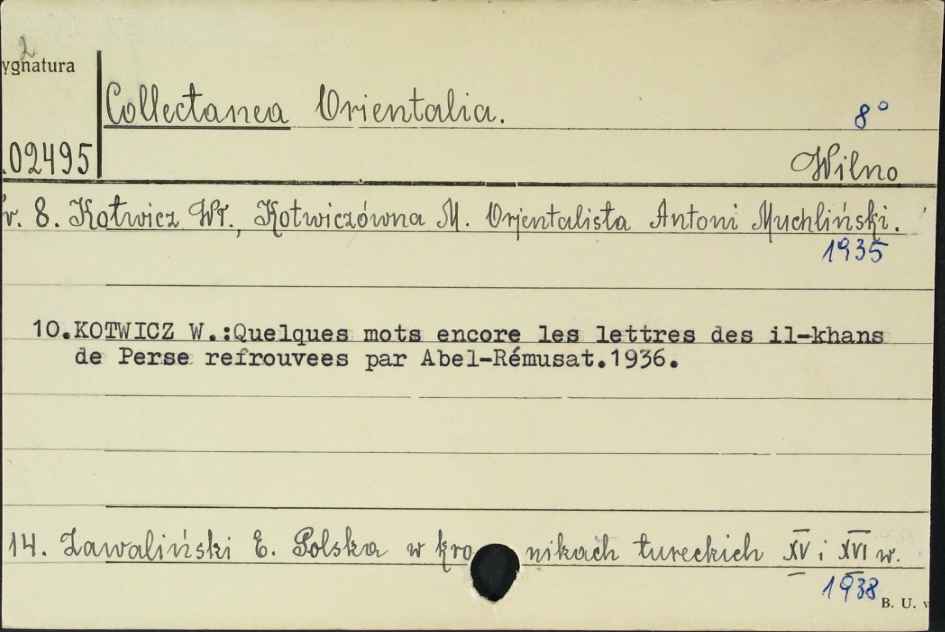 2
ygnatura
Collectanea Orientalia.
8°
.02495
Wilno
r. 8. Kotwicz Wł., Kotwiczówna M. Orjentalista Antoni Muchliński.
1935
10.KOTWICZ W.:Quelques mots encore les lettres des il-khans
de Perse refrouvees par Abel-Rémusat.1936.
14. Zawaliński E. Polska w kronikach tureckich XV i XVI w.
1938
B. U. w